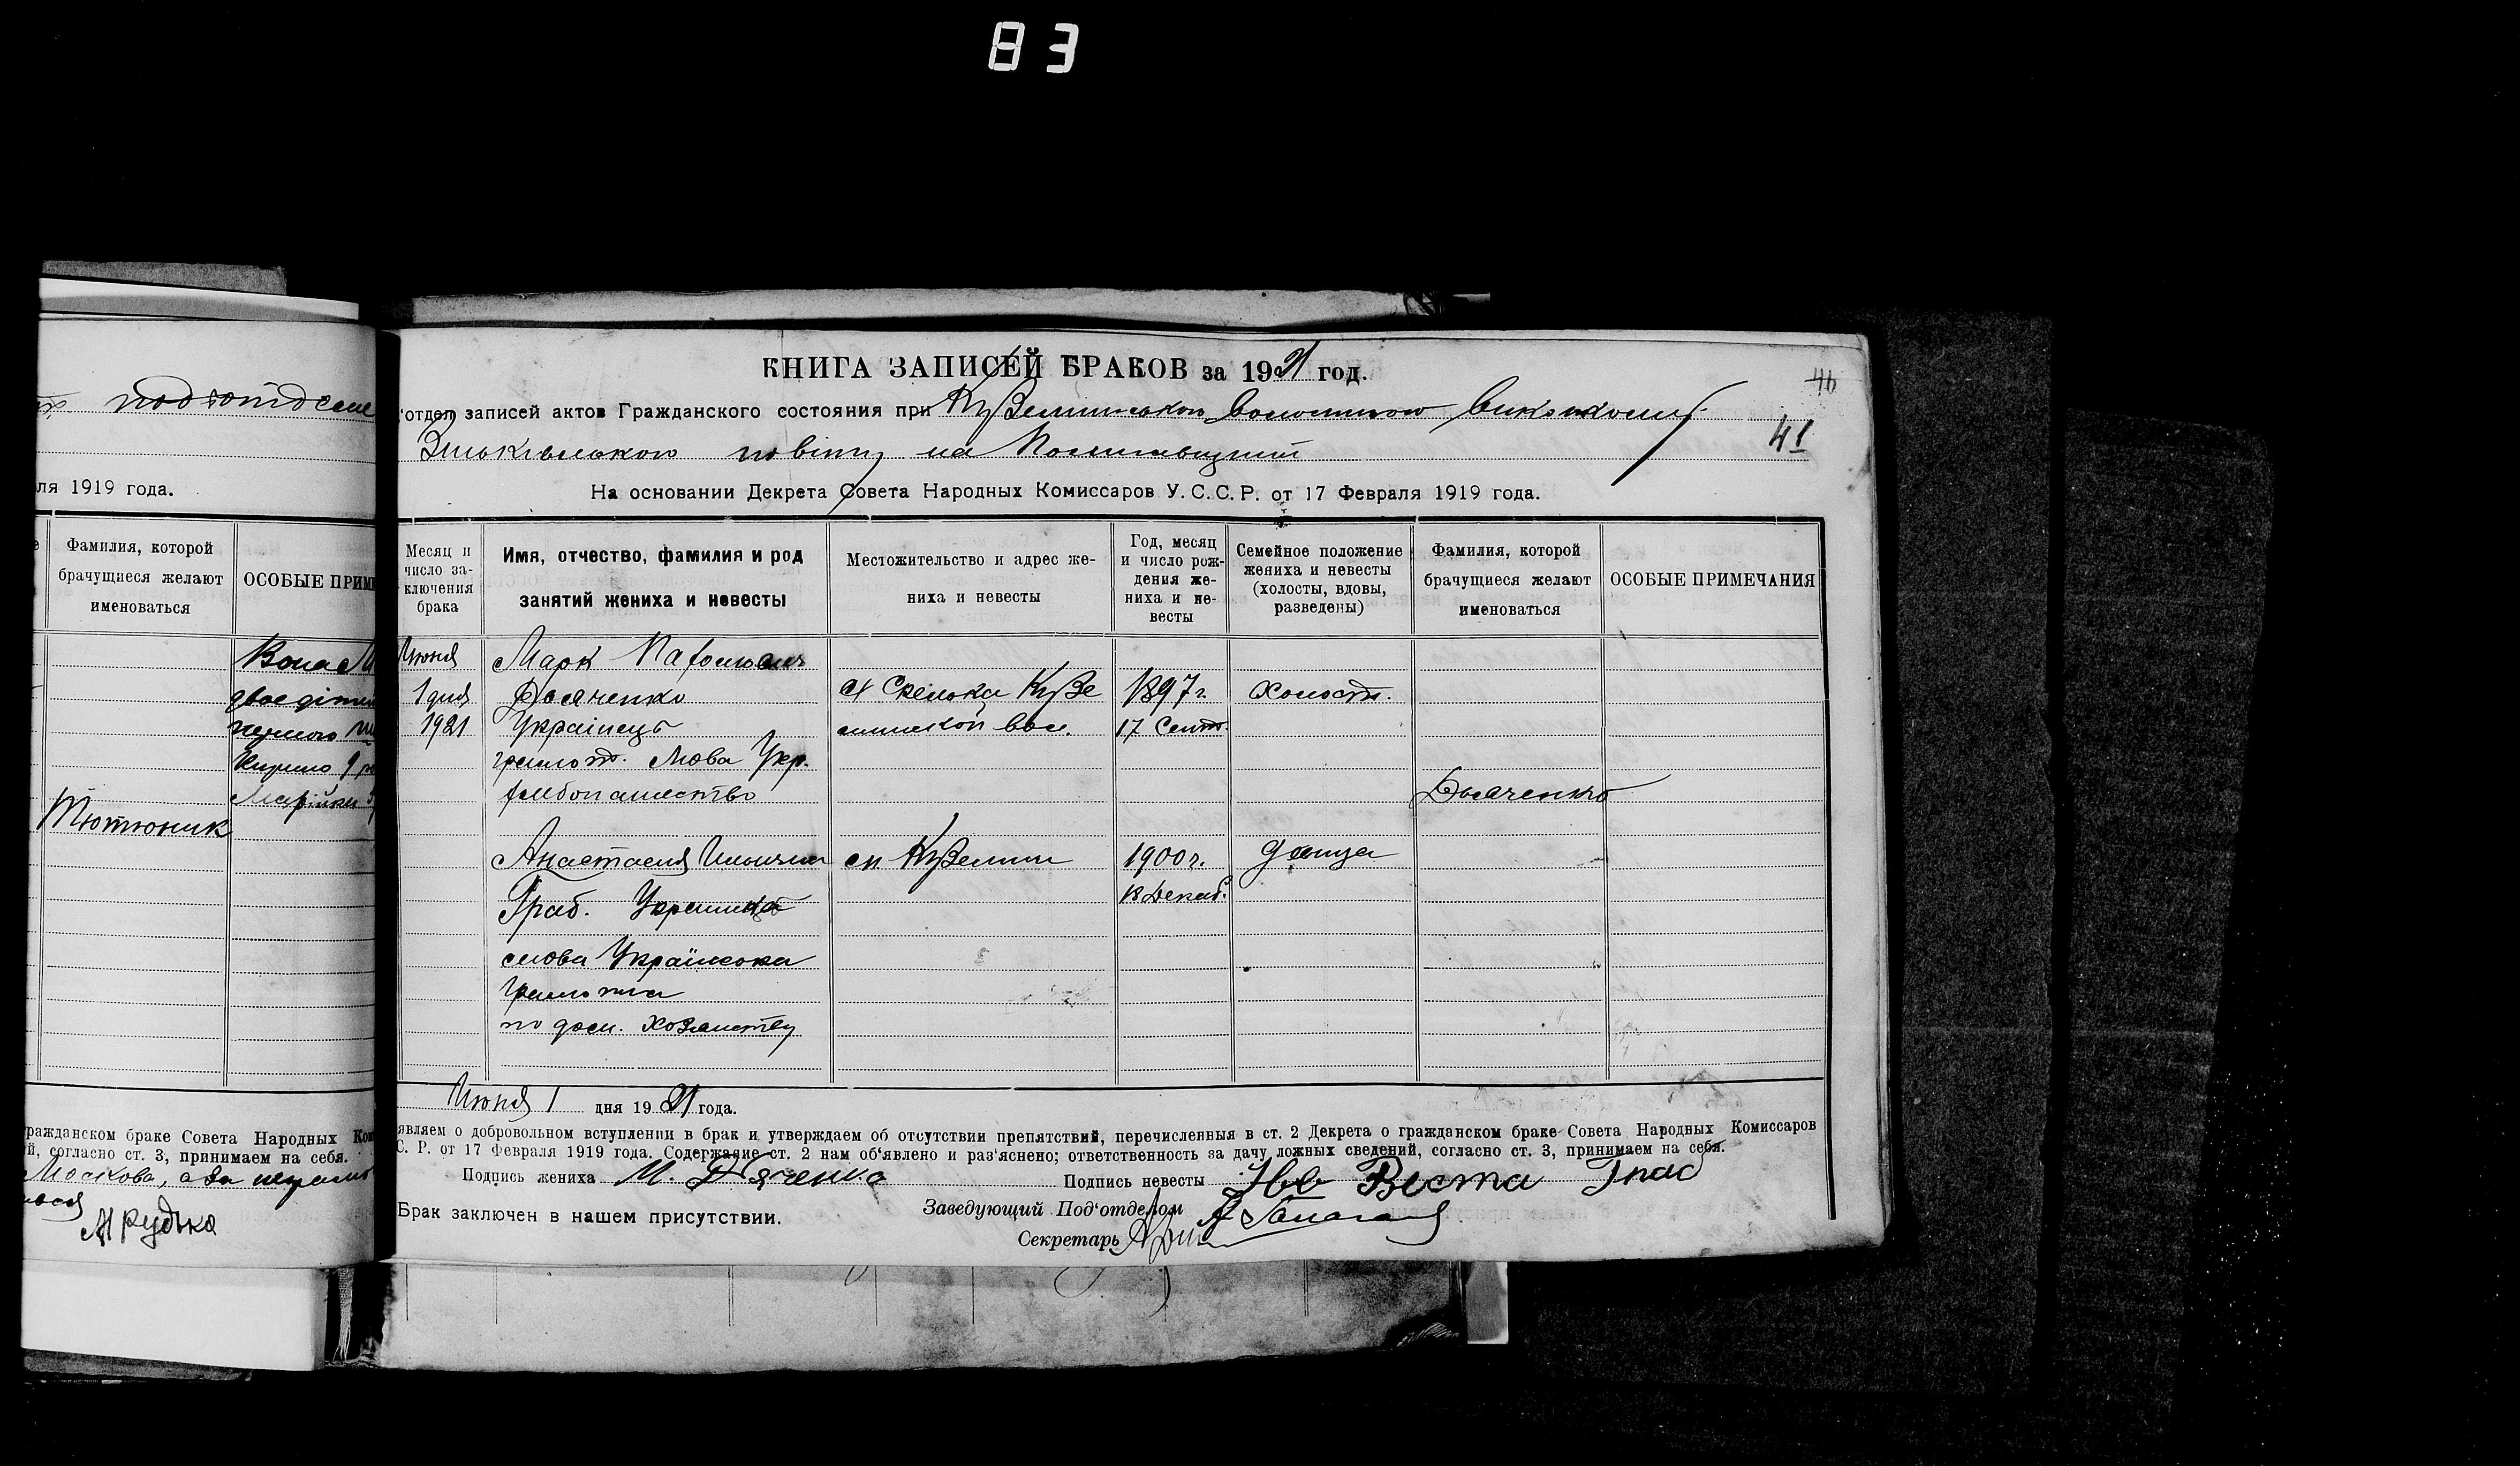 83
под'отделе
ля 1919 года.
Фамилия, которой
брачущиеся желают
именоваться
ОСОБЫЕ ПРИМ
Вона
двое дітей
першого
Кирило 9
Марійка
Тютюник
ражданском браке Совета Народных Ком
й, согласно ст. 3, принимаем на себя.
Москова, а за неграмот
М Рудька
КНИГА ЗАПИСЕЙ БРАКОВ за 1921 год.
46
'отдел записей актов Гражданского состояния при Куземинськом Волостном Виконкоми
41
Зіньківського повіту на Полтавщині
На основании Декрета Совета Народных Комиссаров У.С.С.Р. от 17 Февраля 1919 года.
Месяц и
число за-
ключения
брака
Имя, отчество, фамилия и род
занятий жениха и невесты
Местожительство и адрес же-
ниха и невесты
Год, месяц
и число рож-
дения же-
ниха и не-
весты
Семейное положение
жениха и невесты
(холосты, вдовы,
разведены)
Фамилия, которой
брачущиеся желают
именоваться
ОСОБЫЕ ПРИМЕЧАНИЯ
Июня
1 дня
1921
Марк
Дьяченко
Українець
грамот. Мова Укр.
хлебопашество
Скелька Кузе
минской вол.
1897 г.
17 Сент.
Холост.
Дьяченко
Анастасия Ильична
Граб. Украинка
мова Українська
Грамотна
по дом. хозяйству
м. Куземин
1900 г.
18 Декаб.
девица
Июня 1 дня 1921 года.
являем о добровольном вступлении в брак и утверждаем об отсутствии препятствий, перечисленныя в ст. 2 Декрета о гражданском браке Совета Народных Комиссаров
С. Р. от 17 Февраля 1919 года. Содержание ст. 2 нам об'явлено и раз'яснено; ответственность за дачу ложных сведений, согласно ст. 3, принимаем на себя.
Подпись жениха М. Дяченко
Подпись невесты Не Веста Граб
Брак заключен в нашем присутствии.
Заведующий Под'отделом
Секретарь